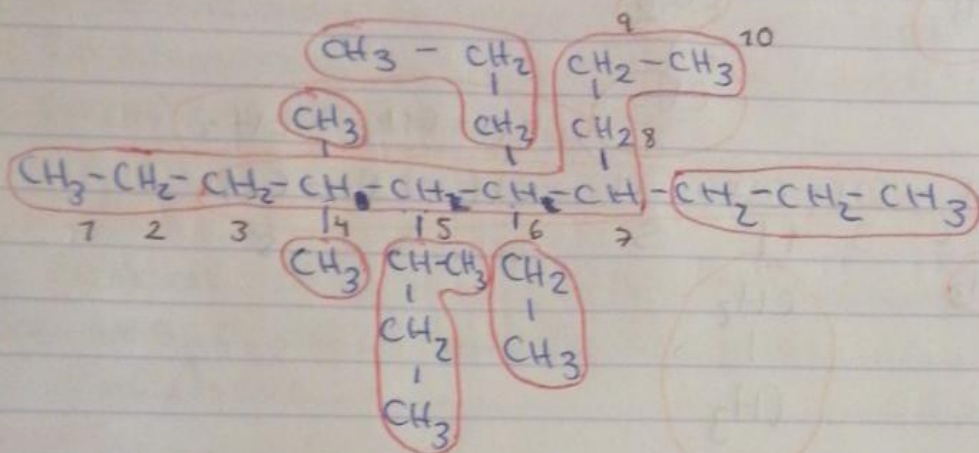 9 10
CH3 - CH2 CH2-CH3
CH3 CH2 CH2 8
CH3-CH2-CH2-CH-CH-CH-CH-CH2-CH2-CH3
1 2 3 4 5 6 7
CH3 CH-CH3 CH2
CH2 CH3
CH3